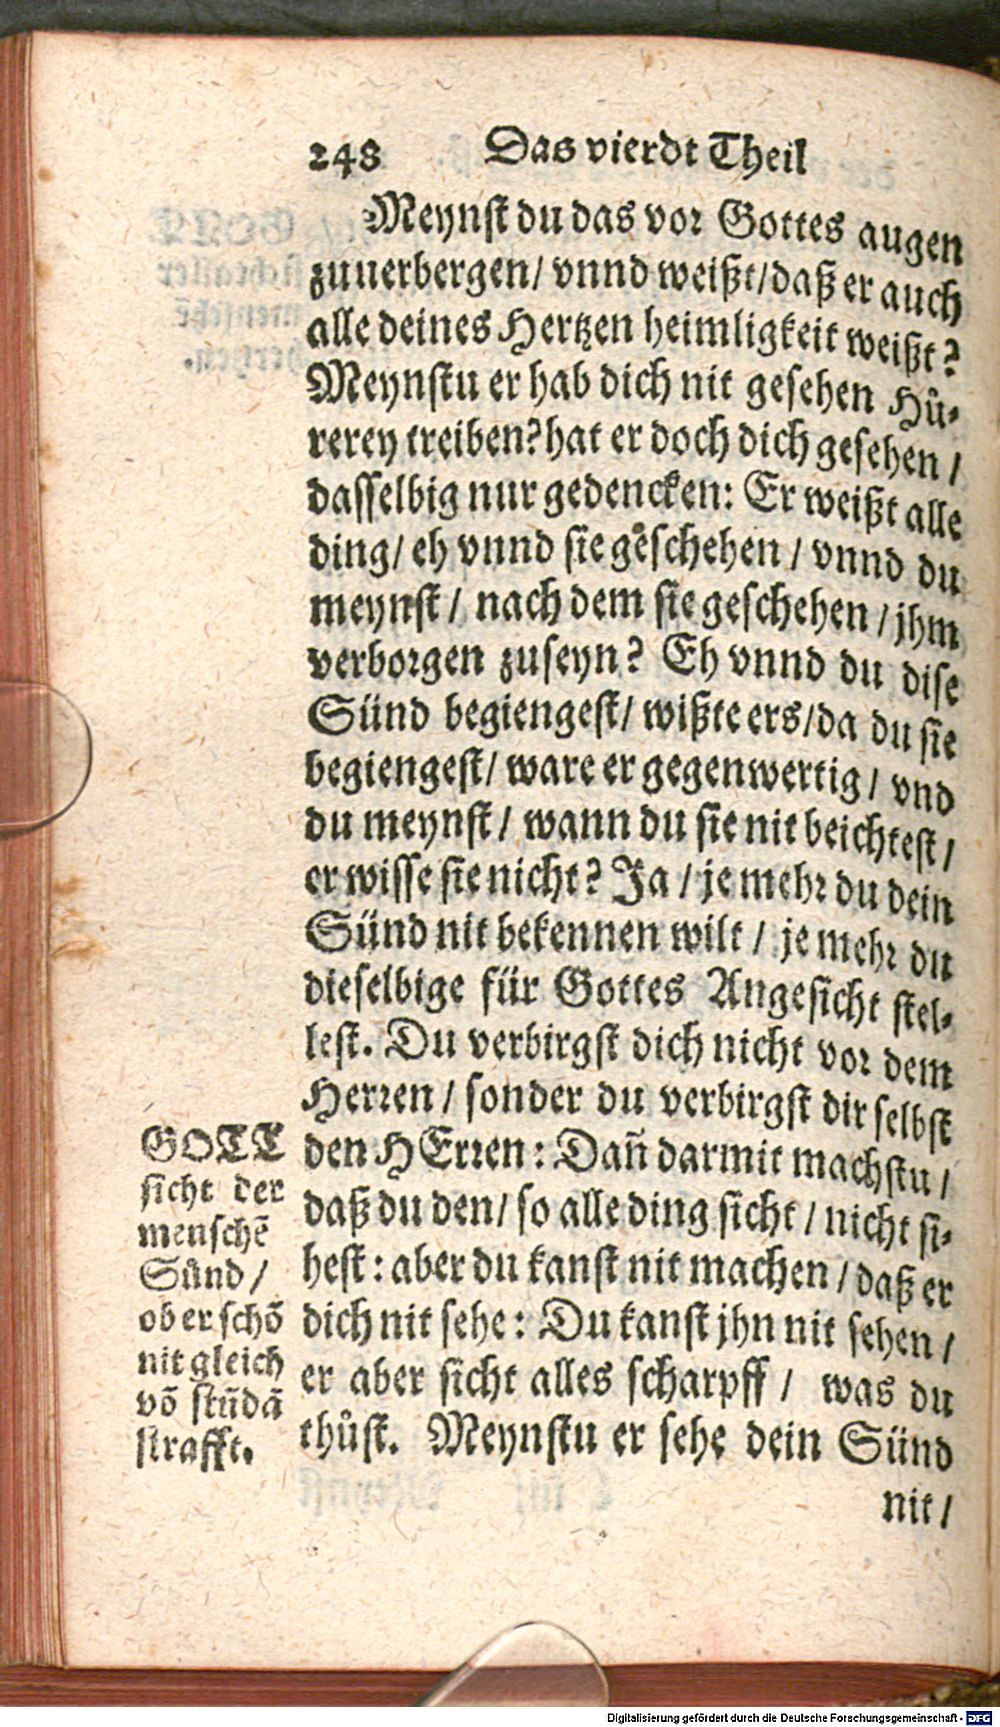 248 Das vierdt Theil
Meynst du das vor Gottes augen
zuuerbergen/ vnnd weißt/daß er auch
alle deines Hertzen heimligkeit weißt?
Meynstu er hab dich nit gesehen Hů-
rerey treiben? hat er doch dich gesehen /
dasselbig nur gedencken: Er weißt alle
ding/ eh vnnd sie geschehen / vnnd du
meynst / nach dem sie geschehen / jhm
verborgen zuseyn? Eh vnnd du dise
Sünd begiengest/ wißte ers/da du sie
begiengest/ ware er gegenwertig / vnd
du meynst / wann du sie nit beichtest /
er wisse sie nicht? Ja / je mehr du dein
Sünd nit bekennen wilt / je mehr du
dieselbige für Gottes Angesicht stel-
lest. Du verbirgst dich nicht vor dem
Herren / sonder du verbirgst dir selbst
den HErren: Dañ darmit machstu /
daß du den/ so alle ding sicht / nicht si-
hest: aber du kanst nit machen / daß er
dich nit sehe: Du kanst jhn nit sehen /
er aber sicht alles scharpff / was du
thůst. Meynstu er sehe dein Sünd
nit /
GOTT
sicht der
menschẽ
Sünd /
ob er schõ
nit gleich
võ stũdã
strafft.
Digitalisierung gefördert durch die Deutsche Forschungsgemeinschaft - DFG